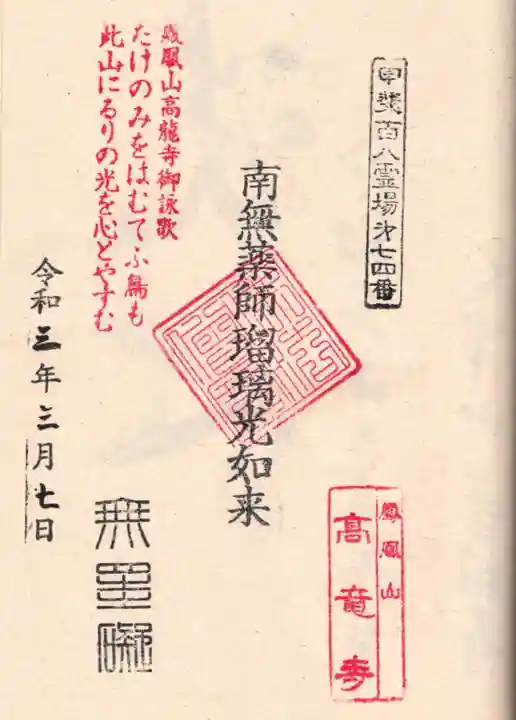 甲斐百八霊場第七四番
鳳凰山
高竜寺
南無薬師瑠璃光如来
鳳凰山高龍寺御詠歌
たけのみをはむてふ鳥も
此山にるりの光を心とやすむ
無罣礙
令和三年三月七日